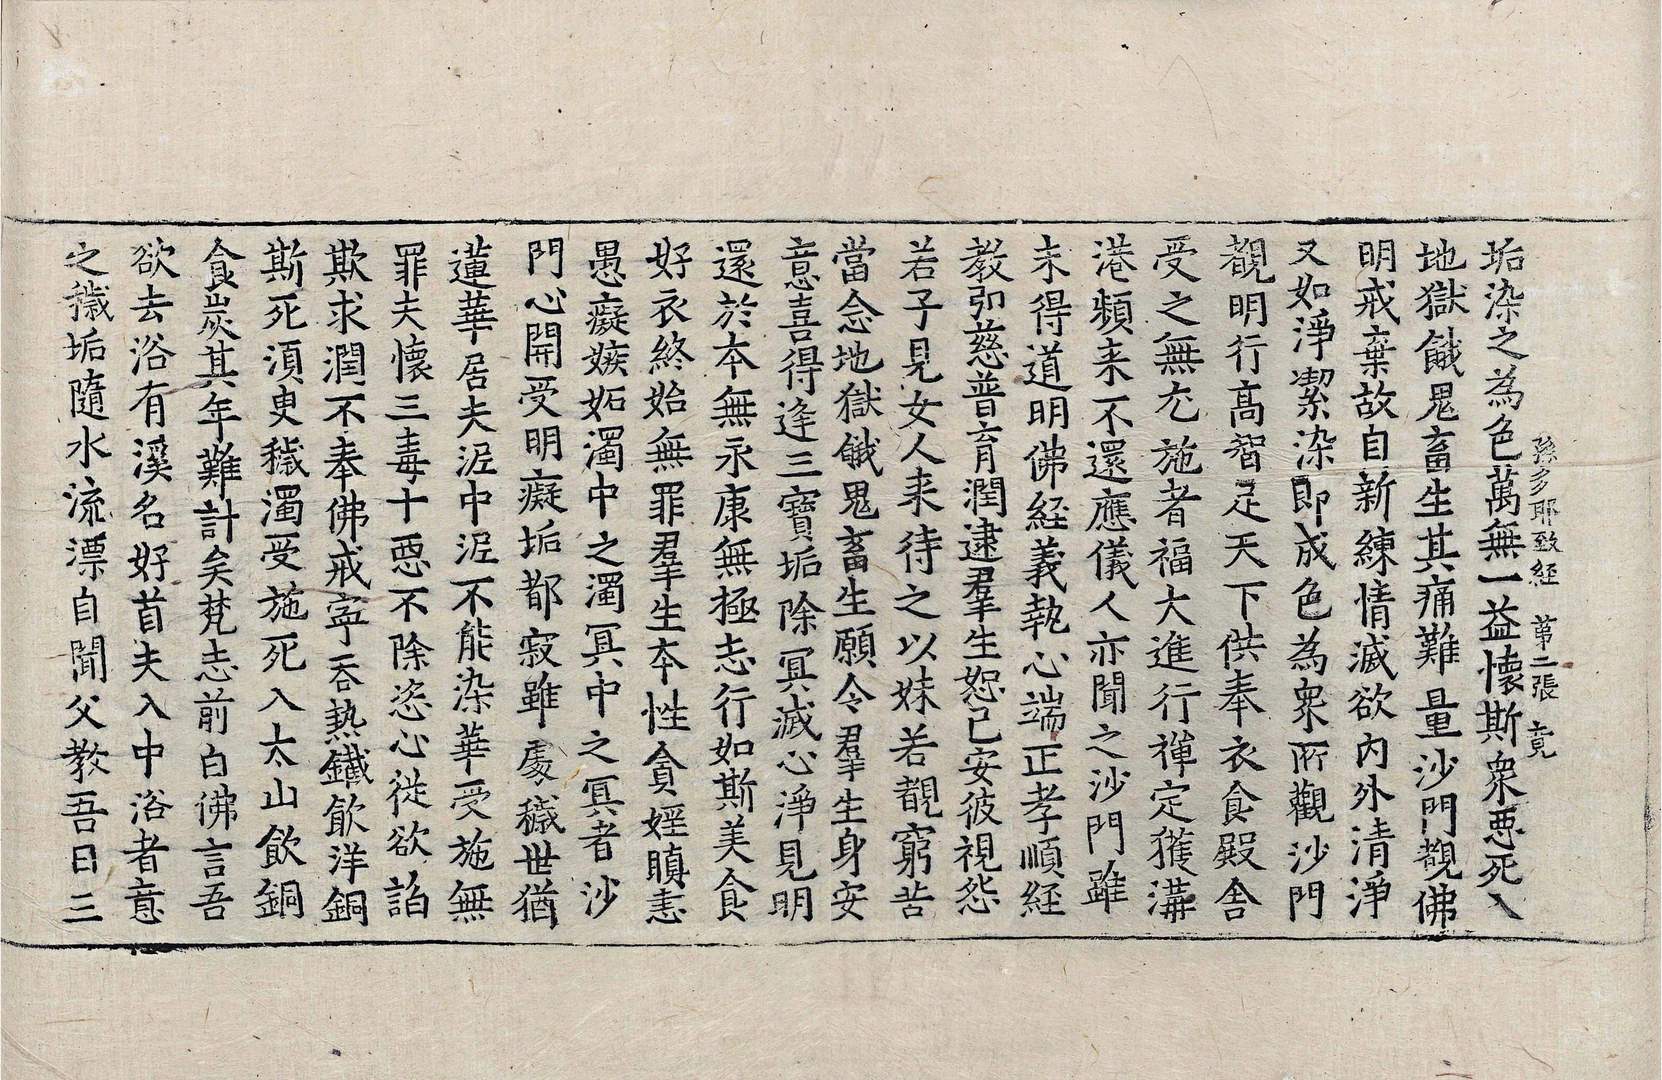 孫多耶致経 第二張 竟
垢染之為色萬無一益懷斯衆悪死入
地獄餓鬼畜生其痛難量沙門覩佛
明戒棄故自新練情滅欲內外清淨
又如淨潔染即成色為衆所觀沙門
覩明行髙智足天下供奉衣食殿舎
受之無尢施者福大進行禪定獲溝
港頻来不還應儀人亦聞之沙門雖
未得道明佛経義執心端正孝順経
教弘慈普育潤逮羣生恕己安彼視怨
若子見女人来待之以妹若覩窮苦
當念地獄餓鬼畜生願令羣生身安
意喜得逢三寶垢除冥滅心淨見明
還於夲無永康無極志行如斯美食
好衣終始無罪羣生夲性貪婬瞋恚
愚癡嫉妬濁中之濁冥中之冥者沙
門心開受明癡垢都寂雖䖏穢世猶
蓮華居夫泥中泥不能染華受施無
罪夫懷三毒十悪不除恣心從欲謟
欺求潤不奉佛戒寜吞熱鐵飲洋銅
斯死湏臾穢濁受施死入太山飲銅
食炭其年難計矣梵志前白佛言吾
欲去浴有溪名好首夫入中浴者意
之穢垢隨水流漂自聞父教吾日三